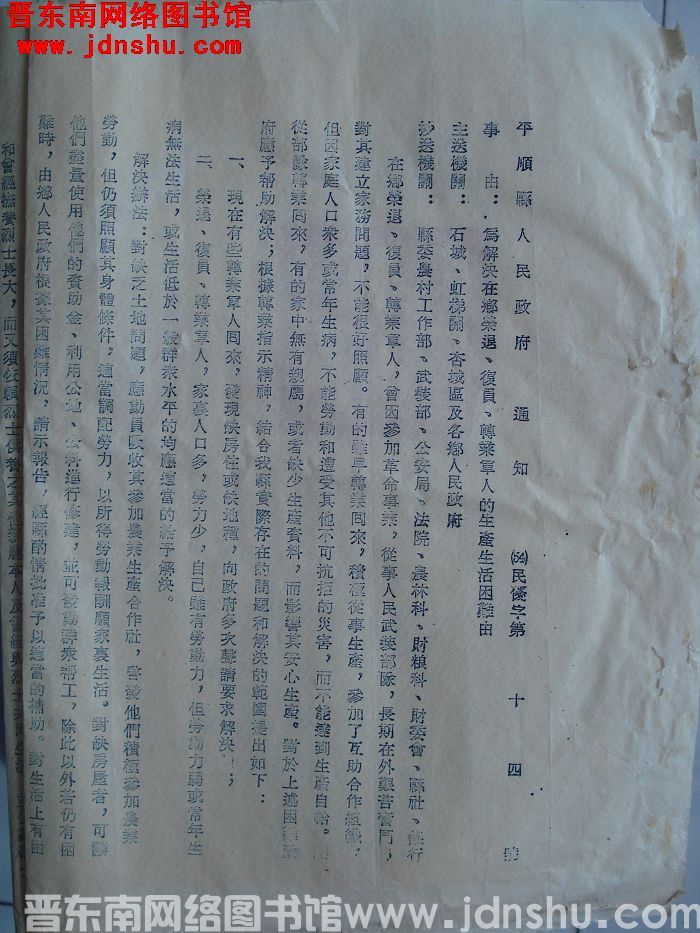 晋东南网络图书馆
www.jdnshu.com
平順縣人民政府通知
(54)民優字第十四號
事由：為解決在鄉榮退、復員、轉業軍人的生產生活困難由
主送機關：石城、虹梯關、杏城區及各鄉人民政府
抄送機關：縣委農村工作部、武裝部、公安局、法院、農林科、財粮科、財委會、縣社、銀行
在鄉榮退、復員、轉業軍人，曾因參加革命事業，從事人民武裝部隊，長期在外艱苦奮鬥；
對其建立家務問題，不能很好照顧。有的雖早轉業回來，積極從事生產，參加了互助合作組織，
但因家庭人口衆多或常年生病，不能勞動和遭受其他不可抗拒的災害，而不能達到生產自給。
從部隊轉業回來，有的家中無有親屬，或者缺少生產資料，而影響其安心生產。對於上述困難政
府應予帮助解決；根據轉業指示精神，結合我縣實際存在的問題和解決的範圍提出如下：
一、現在有些轉業軍人回來，發現缺房住或缺地種，向政府多次聲請要求解決；
二、榮退、復員、轉業軍人，家裏人口多，勞力少，自己雖有勞動力，但勞動力弱或常年生
病無法生活，或生活低於一般群衆水平的均應適當的給予解決。
解決辦法：對缺乏土地問題，應動員吸收其參加農業生產合作社，啓發他們積極參加農業
勞動，但仍須照顧其身體條件，適當調配勞力，以所得勞動報酬顧家裏生活。對缺房屋者，可讓
他們盡量使用他們的資助金、利用公地、公料進行修建，並可發動群衆帮工，除此以外若仍有困
難時，由鄉人民政府根據其困難情況，請示報告，經縣酌情批准予以適當的補助。對生活上有困
和曾經撫養烈士長大，而又須依賴烈士供養之其他親屬本人及
晋东南网络图书馆 www.jdnshu.com